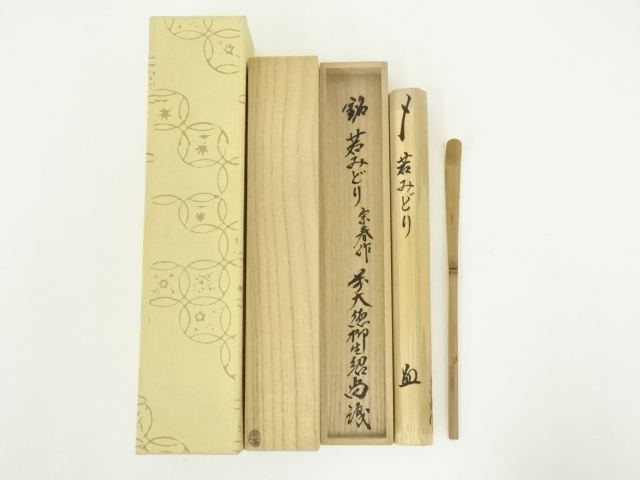 銘 若みどり 宗春作
前大徳柳生紹尚識
〆 若みどり